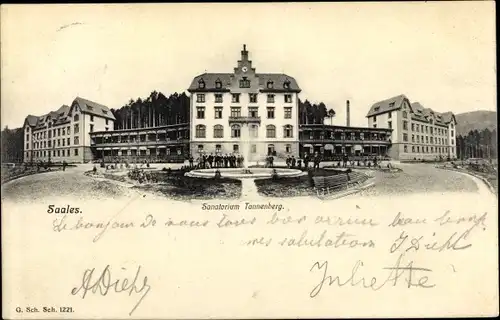 Saales.
Sanatorium Tannenberg.
Le bonjour De vous tous
mes salutation J. Diehl
A Diehl
Juliette
G. Sch. Sch. 1221.